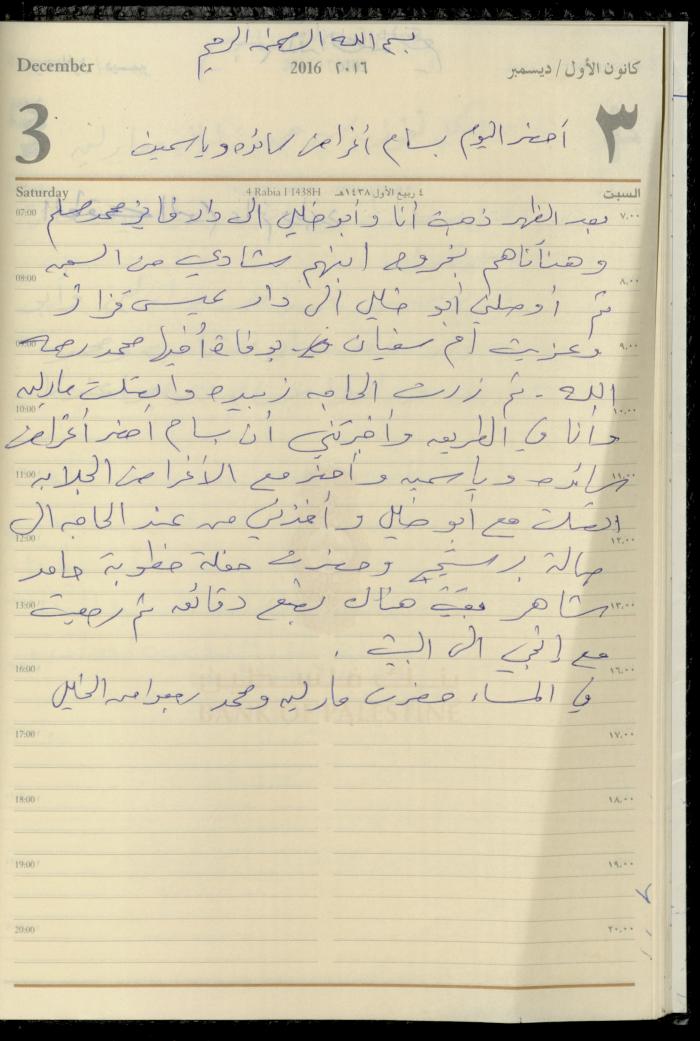 بسم الله الرحمن الرحيم
December
2016 ٢٠١٦
كانون الأول / ديسمبر
3
٣
أحضر اليوم بسام أغراض سائده وياسمين
Saturday
4 Rabia I 1438H ٤ ربيع الأول ١٤٣٨هـ
السبت
07:00 ٧.٠٠
بعد الظهر ذهبت أنا وأبو خليل الى دار فايز محمد مسلم
وهنأناهم بخروج ابنهم شادي من السجن
08:00 ٨.٠٠
ثم أوصلني أبو خليل الى دار عيسى قزاز
09:00 ٩.٠٠
وعزيت أم سفيان بوفاة أخيها محمد رحمه
الله . ثم زرت الحاجه زبيده واتصلت مارلين
10:00 ١٠.٠٠
وأنا في الطريق وأخبرتني أن بسام أحضر أغراض
11:00 ١١.٠٠
سائده وياسمين وأحضر مع الأغراض الجلابه
اتصلت مع أبو خليل وأخذني من عند الحاجه الى
12:00 ١٢.٠٠
صالة برستيج وحضرت حفلة خطوبة حامد
13:00 ١٣.٠٠
شاهر بقيت هناك بضع دقائق ثم رجعت
مع إلى البيت .
16:00 ١٦.٠٠
في المساء حضرت مارلين ومحمد رجعوا من الخليل
BANK OF PALESTINE
17:00 ١٧.٠٠
18:00 ١٨.٠٠
19:00 ١٩.٠٠
20:00 ٢٠.٠٠